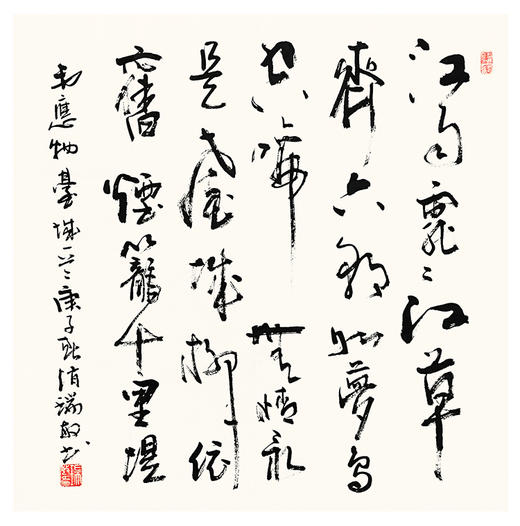 江雨霏〻江草
齊六朝如夢鳥
空啼無情最
是臺城柳依
舊煙籠十里堤
韋應物臺城 庚子 瑞敏书